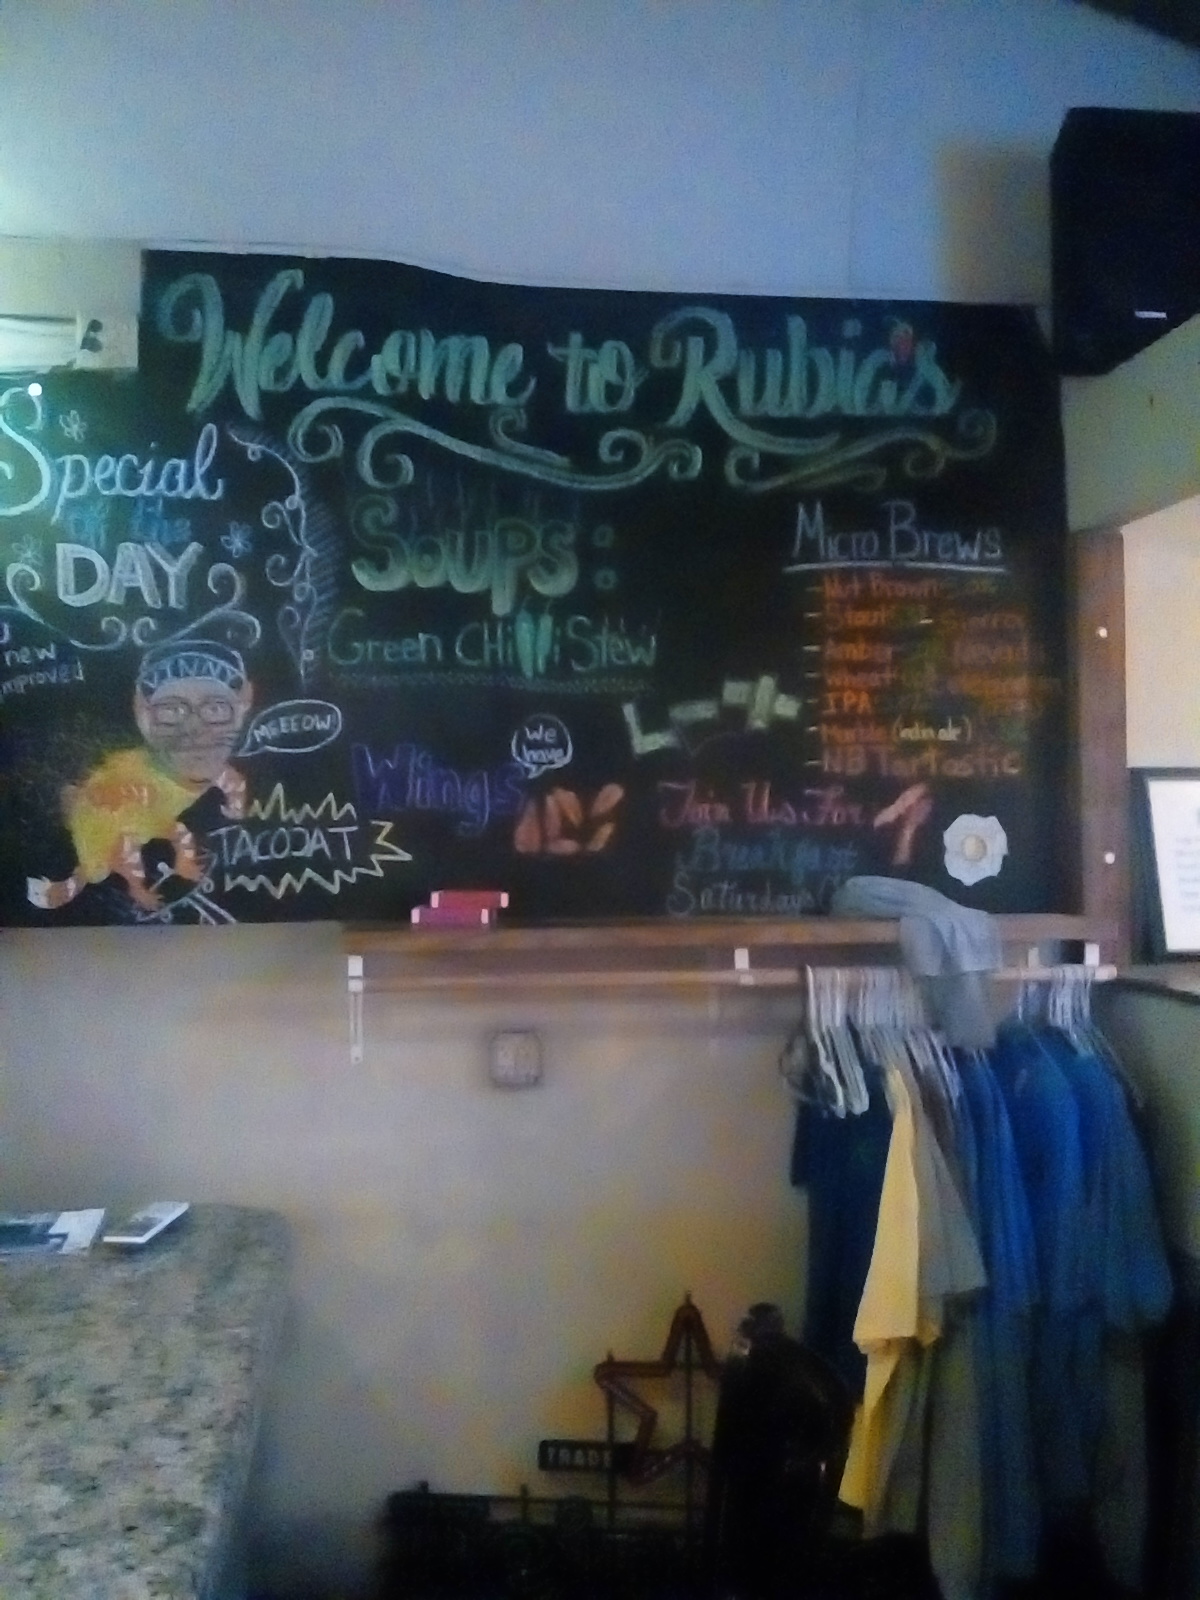 Welcome to Rubia's
Special
of the
DAY
new
improved
VINNY
MEEEOW!
TACOCAT
Soups:
Green CHilli Stew
Wings
We
have
Micro Brews
- Nut Brown
- Stout - Sierra
- Amber Nevada
- Wheat
- IPA
- NB Tartastic
Join Us For
Breakfast
Saturdays
TRADE